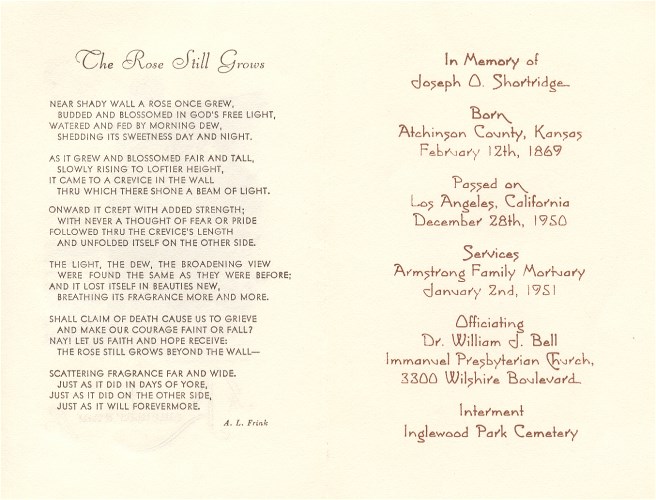 The Rose Still Grows
NEAR SHADY WALL A ROSE ONCE GREW,
BUDDED AND BLOSSOMED IN GOD'S FREE LIGHT,
WATERED AND FED BY MORNING DEW,
SHEDDING ITS SWEETNESS DAY AND NIGHT.
AS IT GREW AND BLOSSOMED FAIR AND TALL,
SLOWLY RISING TO LOFTIER HEIGHT,
IT CAME TO A CREVICE IN THE WALL
THRU WHICH THERE SHONE A BEAM OF LIGHT.
ONWARD IT CREPT WITH ADDED STRENGTH;
WITH NEVER A THOUGHT OF FEAR OR PRIDE
FOLLOWED THRU THE CREVICE'S LENGTH
AND UNFOLDED ITSELF ON THE OTHER SIDE.
THE LIGHT, THE DEW, THE BROADENING VIEW
WERE FOUND THE SAME AS THEY WERE BEFORE;
AND IT LOST ITSELF IN BEAUTIES NEW,
BREATHING ITS FRAGRANCE MORE AND MORE.
SHALL CLAIM OF DEATH CAUSE US TO GRIEVE
AND MAKE OUR COURAGE FAINT OR FALL?
NAY! LET US FAITH AND HOPE RECEIVE:
THE ROSE STILL GROWS BEYOND THE WALL—
SCATTERING FRAGRANCE FAR AND WIDE.
JUST AS IT DID IN DAYS OF YORE,
JUST AS IT DID ON THE OTHER SIDE,
JUST AS IT WILL FOREVERMORE.
A. L. Frink
In Memory of
Joseph O. Shortridge
Born
Atchinson County, Kansas
February 12th, 1869
Passed on
Los Angeles, California
December 28th, 1950
Services
Armstrong Family Mortuary
January 2nd, 1951
Officiating
Dr. William J. Bell
Immanuel Presbyterian Church,
3300 Wilshire Boulevard
Interment
Inglewood Park Cemetery